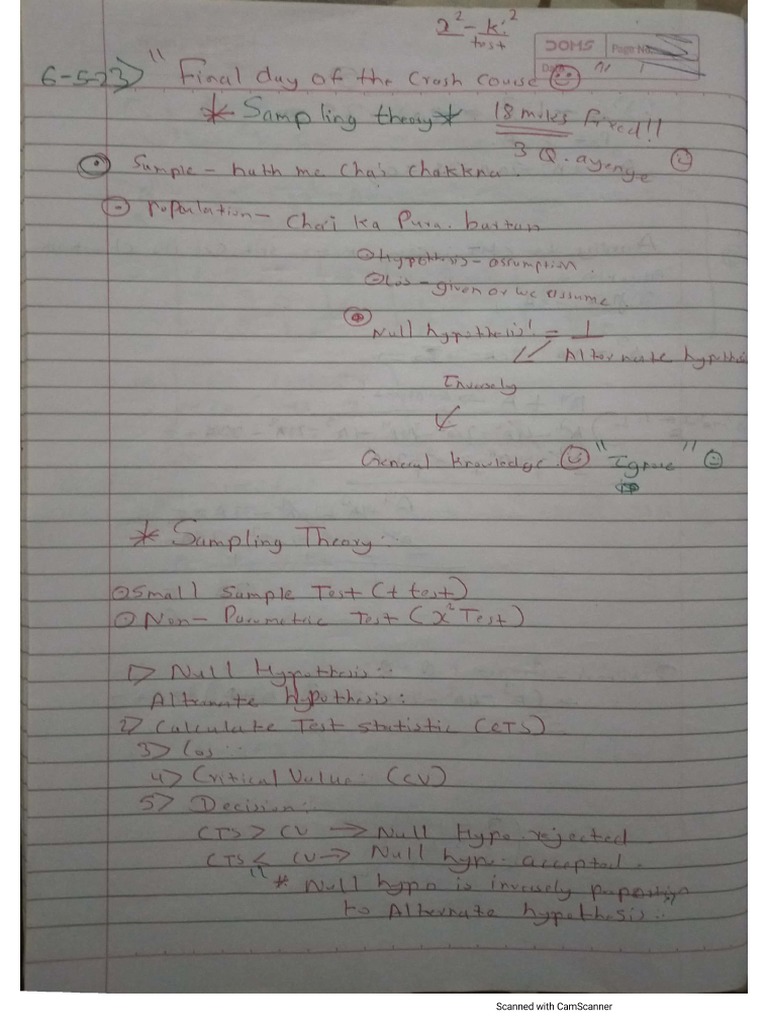 x² - ki²
test
DOMS Page No.
6-5-23> "Final day of the Crash course
* Sampling theory * 18 marks fixed!!
3 Q. ayenge
Sample - hath me Chai chakhna.
Population - Chai ka Pura bartan
Hypothesis - assumption.
Los - given or we assume.
Null hypothesis! = 1
Alternate hypothesis
Inversely
General knowledge. "Igrue"
* Sampling Theory:-
Small Sample Test (t test)
Non-Parametric Test (x² Test)
1> Null Hypothesis:-
Alternate hypothesis:
2> Calculate Test statistic (CTS)
3> Los:-
4> Critical Value: (CV)
5> Decision:-
CTS > CV → Null Hypo rejected
CTS < CV → Null hypo accepted.
"* Null hypo is inversely
to Alternate hypothesis:-